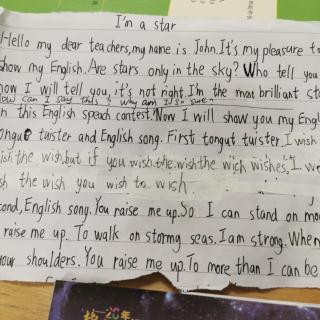 I'm a star
Hello my dear teachers, my name is John. It's my pleasure to
show my English. Are stars only in the sky? Who tell you
now I will tell you, it's not right. I'm the most brilliant st
How can I say this? Why am I so sure?
in this English speach contest. Now I will show you my Engl
tongue twister and English song. First tongut twister, I wish
ish the wish, but if you wish the wish the wich wishes, I w
sh the wish you wish to wish.
cond, English song. You raise me up. So I can stand on mo
raise me up. To walk on stormy seas. I am strong. When
your shoulders. You raise me up. To more than I can be